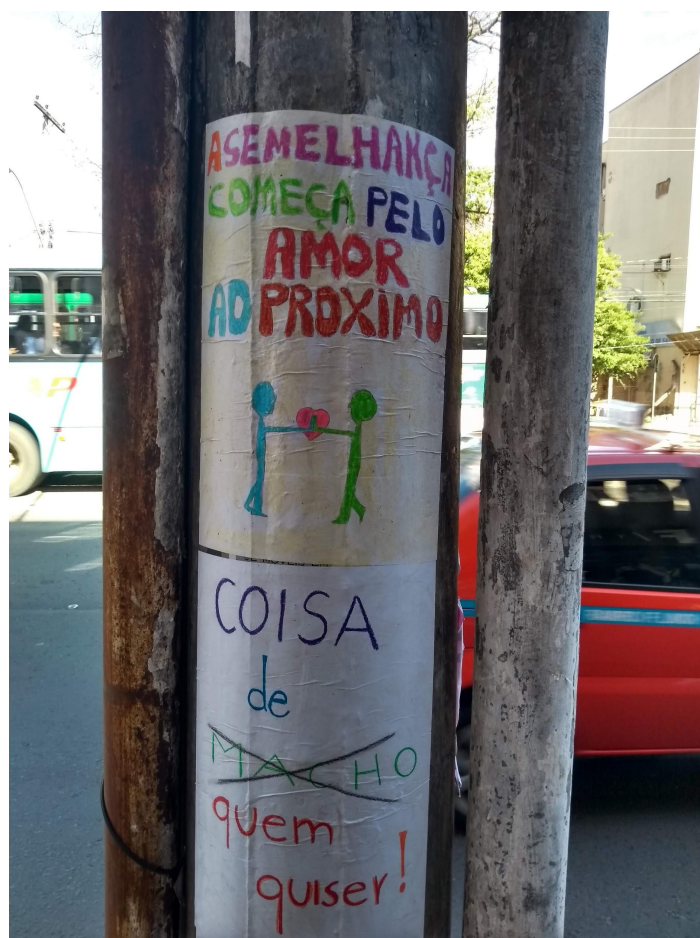 A SEMELHANÇA
COMEÇA PELO
AMOR
AO PROXIMO
COISA
de
MACHO
quem
quiser!